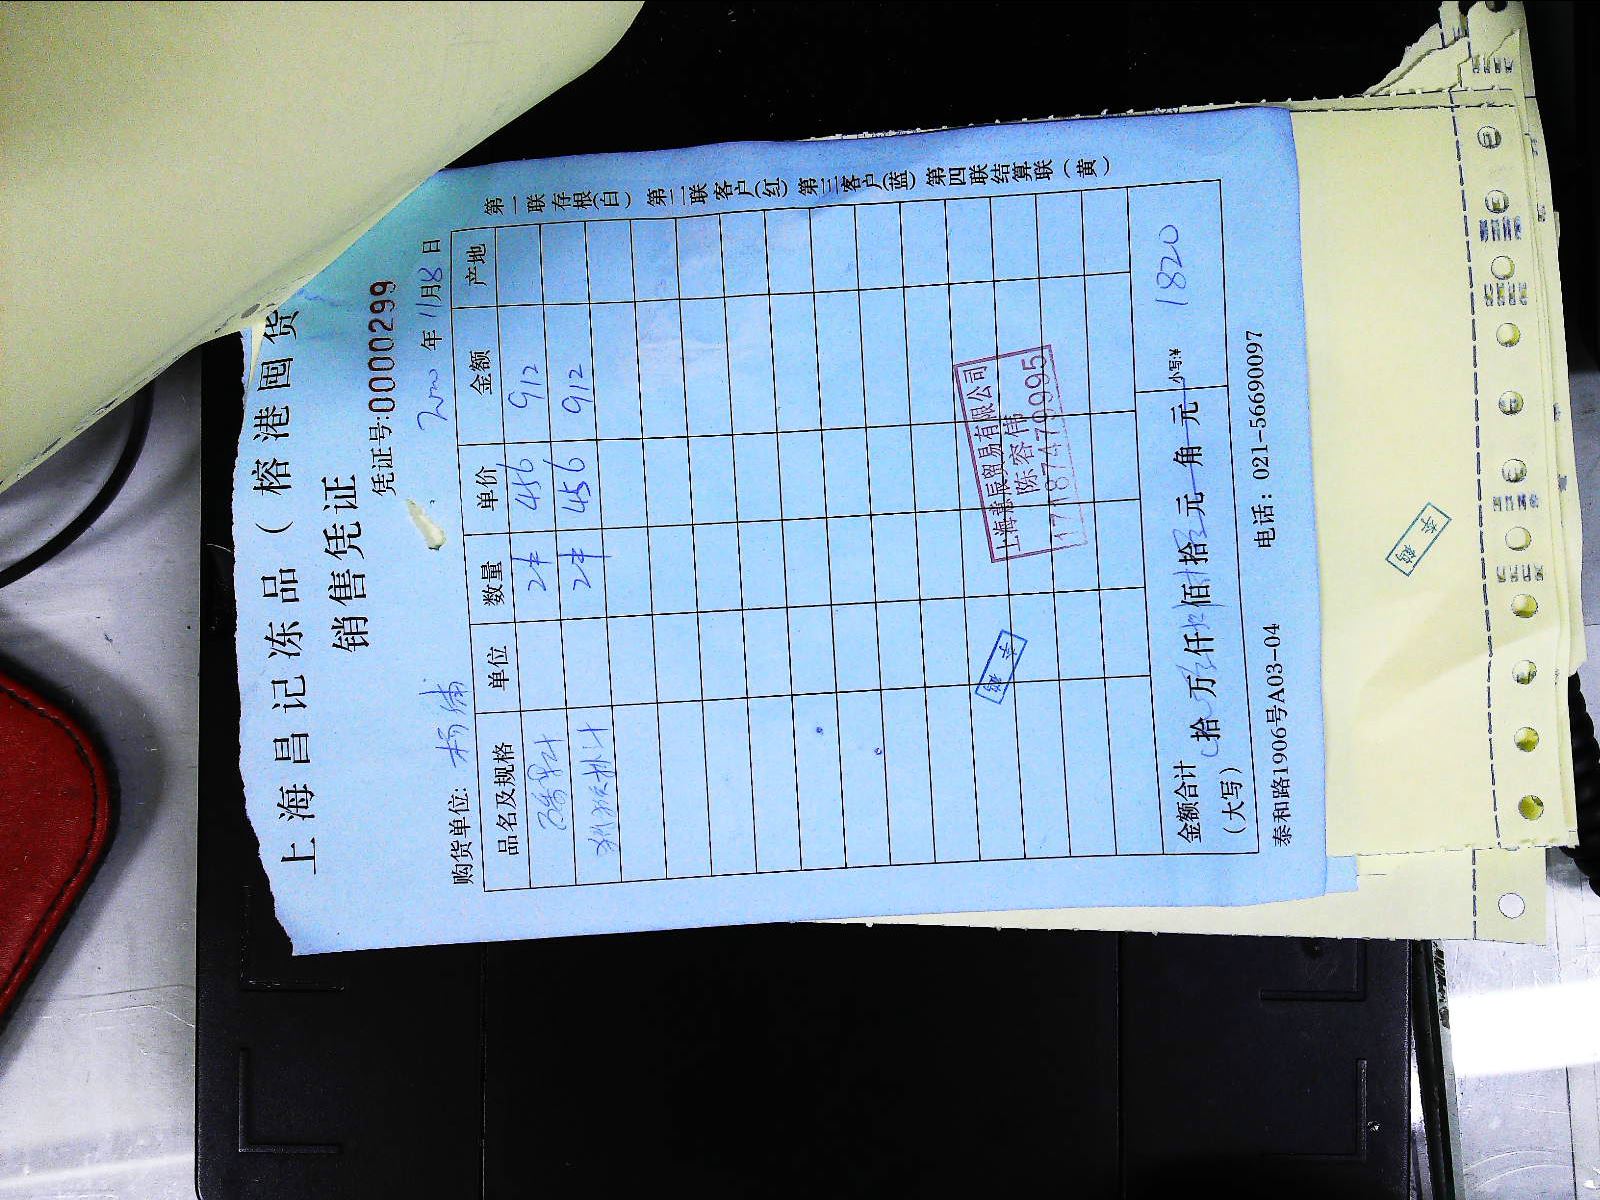 上海昌记冻品（榕港囤货
销售凭证
凭证号:0000299
购货单位: 杨浦 年 11月8日
品名及规格 单位 数量 单价 金额 产地
2件 456 912
2件 456 912
金额合计（大写） 拾 万 仟 佰 拾 元 角 元 小写:¥ 1820
泰和路1906号A03-04 电话: 021-56690097
第一联存根(白) 第二联客户(红) 第三客户(蓝) 第四联结算联（黄）
贸易有限公司
陈容伟
17187479995
李鹤
李鹤